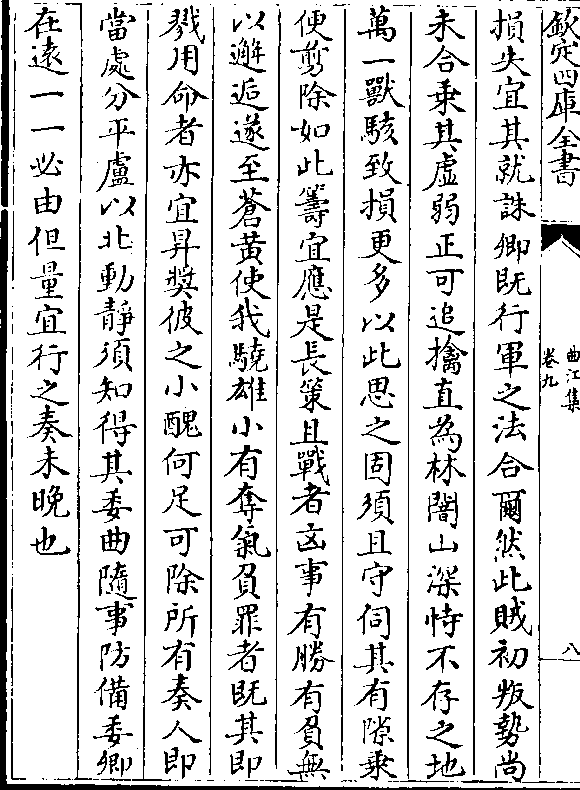 欽定四庫全書
曲江集
卷九
八
損失宜其就誅卿既行軍之法合爾然此賊初叛勢尚
未合乗其虚弱正可追擒直為林闇山深恃不存之地
萬一獸駭致損更多以此思之固須且守伺其有隙乗
便剪除如此籌宜應是長策且戰者凶事有勝有負無
以邂逅遂至蒼黄使我驍雄小有奪氣負罪者既其即
戮用命者亦宜昇奨彼之小醜何足可除所有奏人即
當處分平盧以北動靜須知得其委曲隨事防備委卿
在逺一一必由但量宜行之奏未晚也